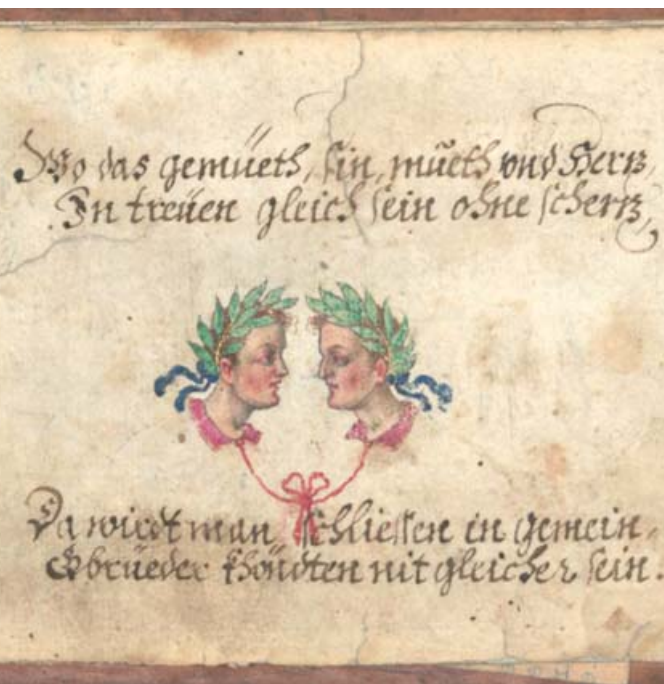 Wo das gemüeth, sin, müeth vnd Hertz,
In treüen gleich sein ohne schertz,
Da wirdt man schliessen in gemein,
Gbrüeder khöndten nit gleicher sein.